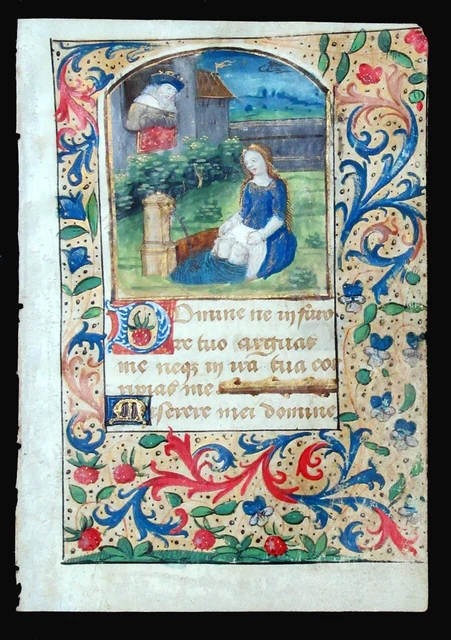 Domine ne in furo
re tuo arguas
me neq3 in ira tua cor
ripias me
Miserere mei domine